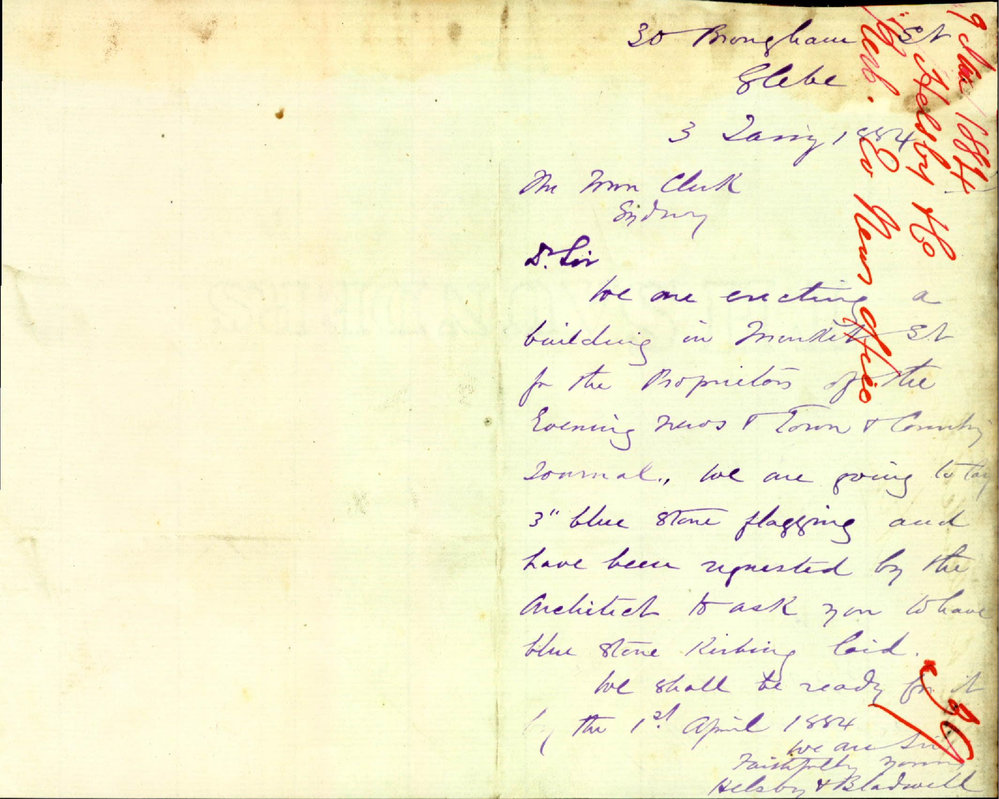 30 Brougham St
Glebe
3 Janry 1884
The Town Clerk
Sydney
Dr. Sir
We are erecting a
building in Market St
for the Proprietors of the
Evening News & Town & Country
Journal., We are going to lay
3" blue stone flagging and
have been requested by the
Architect to ask you to have
blue stone Kirbing laid.
We shall be ready for it
by the 1st. April 1884
We are Sir
Faithfully yours
Helsby & Bladwell
1884
Helsby
Kerb. Ev News office